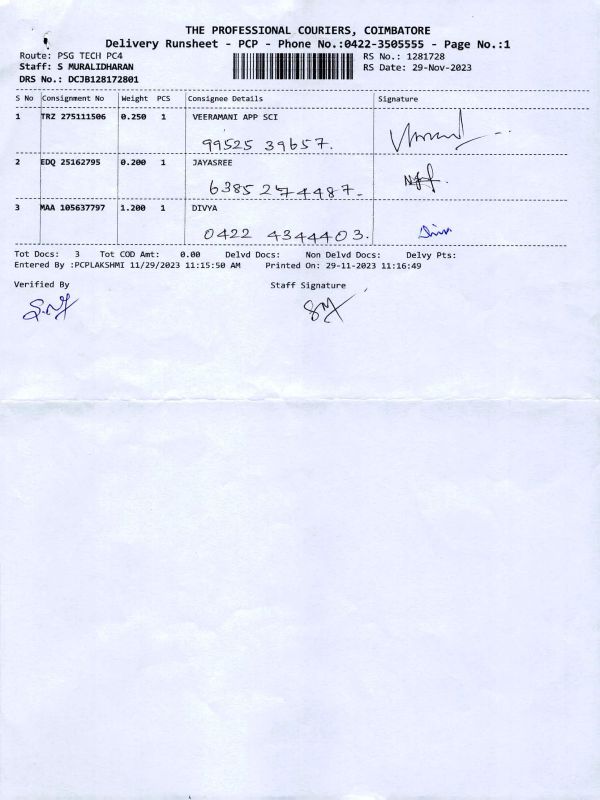 THE PROFESSIONAL COURIERS, COIMBATORE
Delivery Runsheet - PCP - Phone No.:0422-3505555 - Page No.:1
Route: PSG TECH PC4 RS No.: 1281728
Staff: S MURALIDHARAN RS Date: 29-Nov-2023
DRS No.: DCJB128172801
S No Consignment No Weight PCS Consignee Details Signature
1 TRZ 275111506 0.250 1 VEERAMANI APP SCI
99525 39657.
2 EDQ 25162795 0.200 1 JAYASREE
6385 274487.
3 MAA 105637797 1.200 1 DIVYA
0422 4344403.
Tot Docs: 3 Tot COD Amt: 0.00 Delvd Docs: Non Delvd Docs: Delvy Pts:
Entered By :PCPLAKSHMI 11/29/2023 11:15:50 AM Printed On: 29-11-2023 11:16:49
Verified By Staff Signature